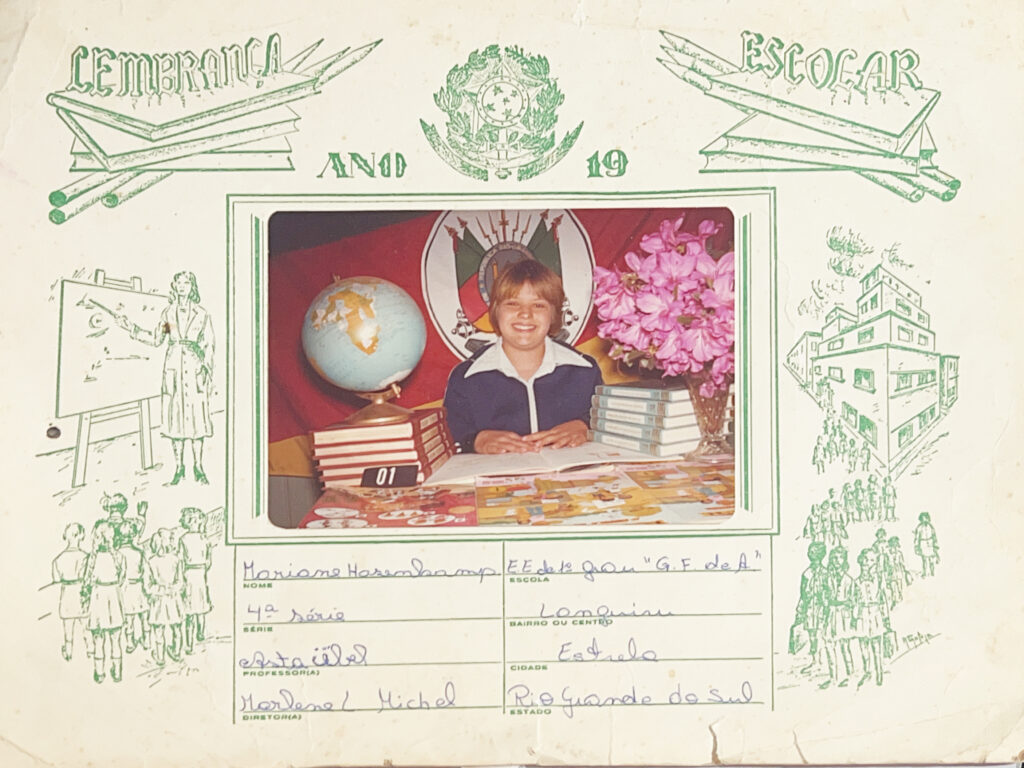 LEMBRANÇA ESCOLAR
ANO 19
01
Mariane Hasenkamp
NOME
E.E de 1º grau "G.F de A"
ESCOLA
4ª série
SÉRIE
Languiru
BAIRRO OU CENTRO
Asta
PROFESSOR(A)
Estrela
CIDADE
Marlene L Michel
DIRETOR(A)
Rio Grande do Sul
ESTADO